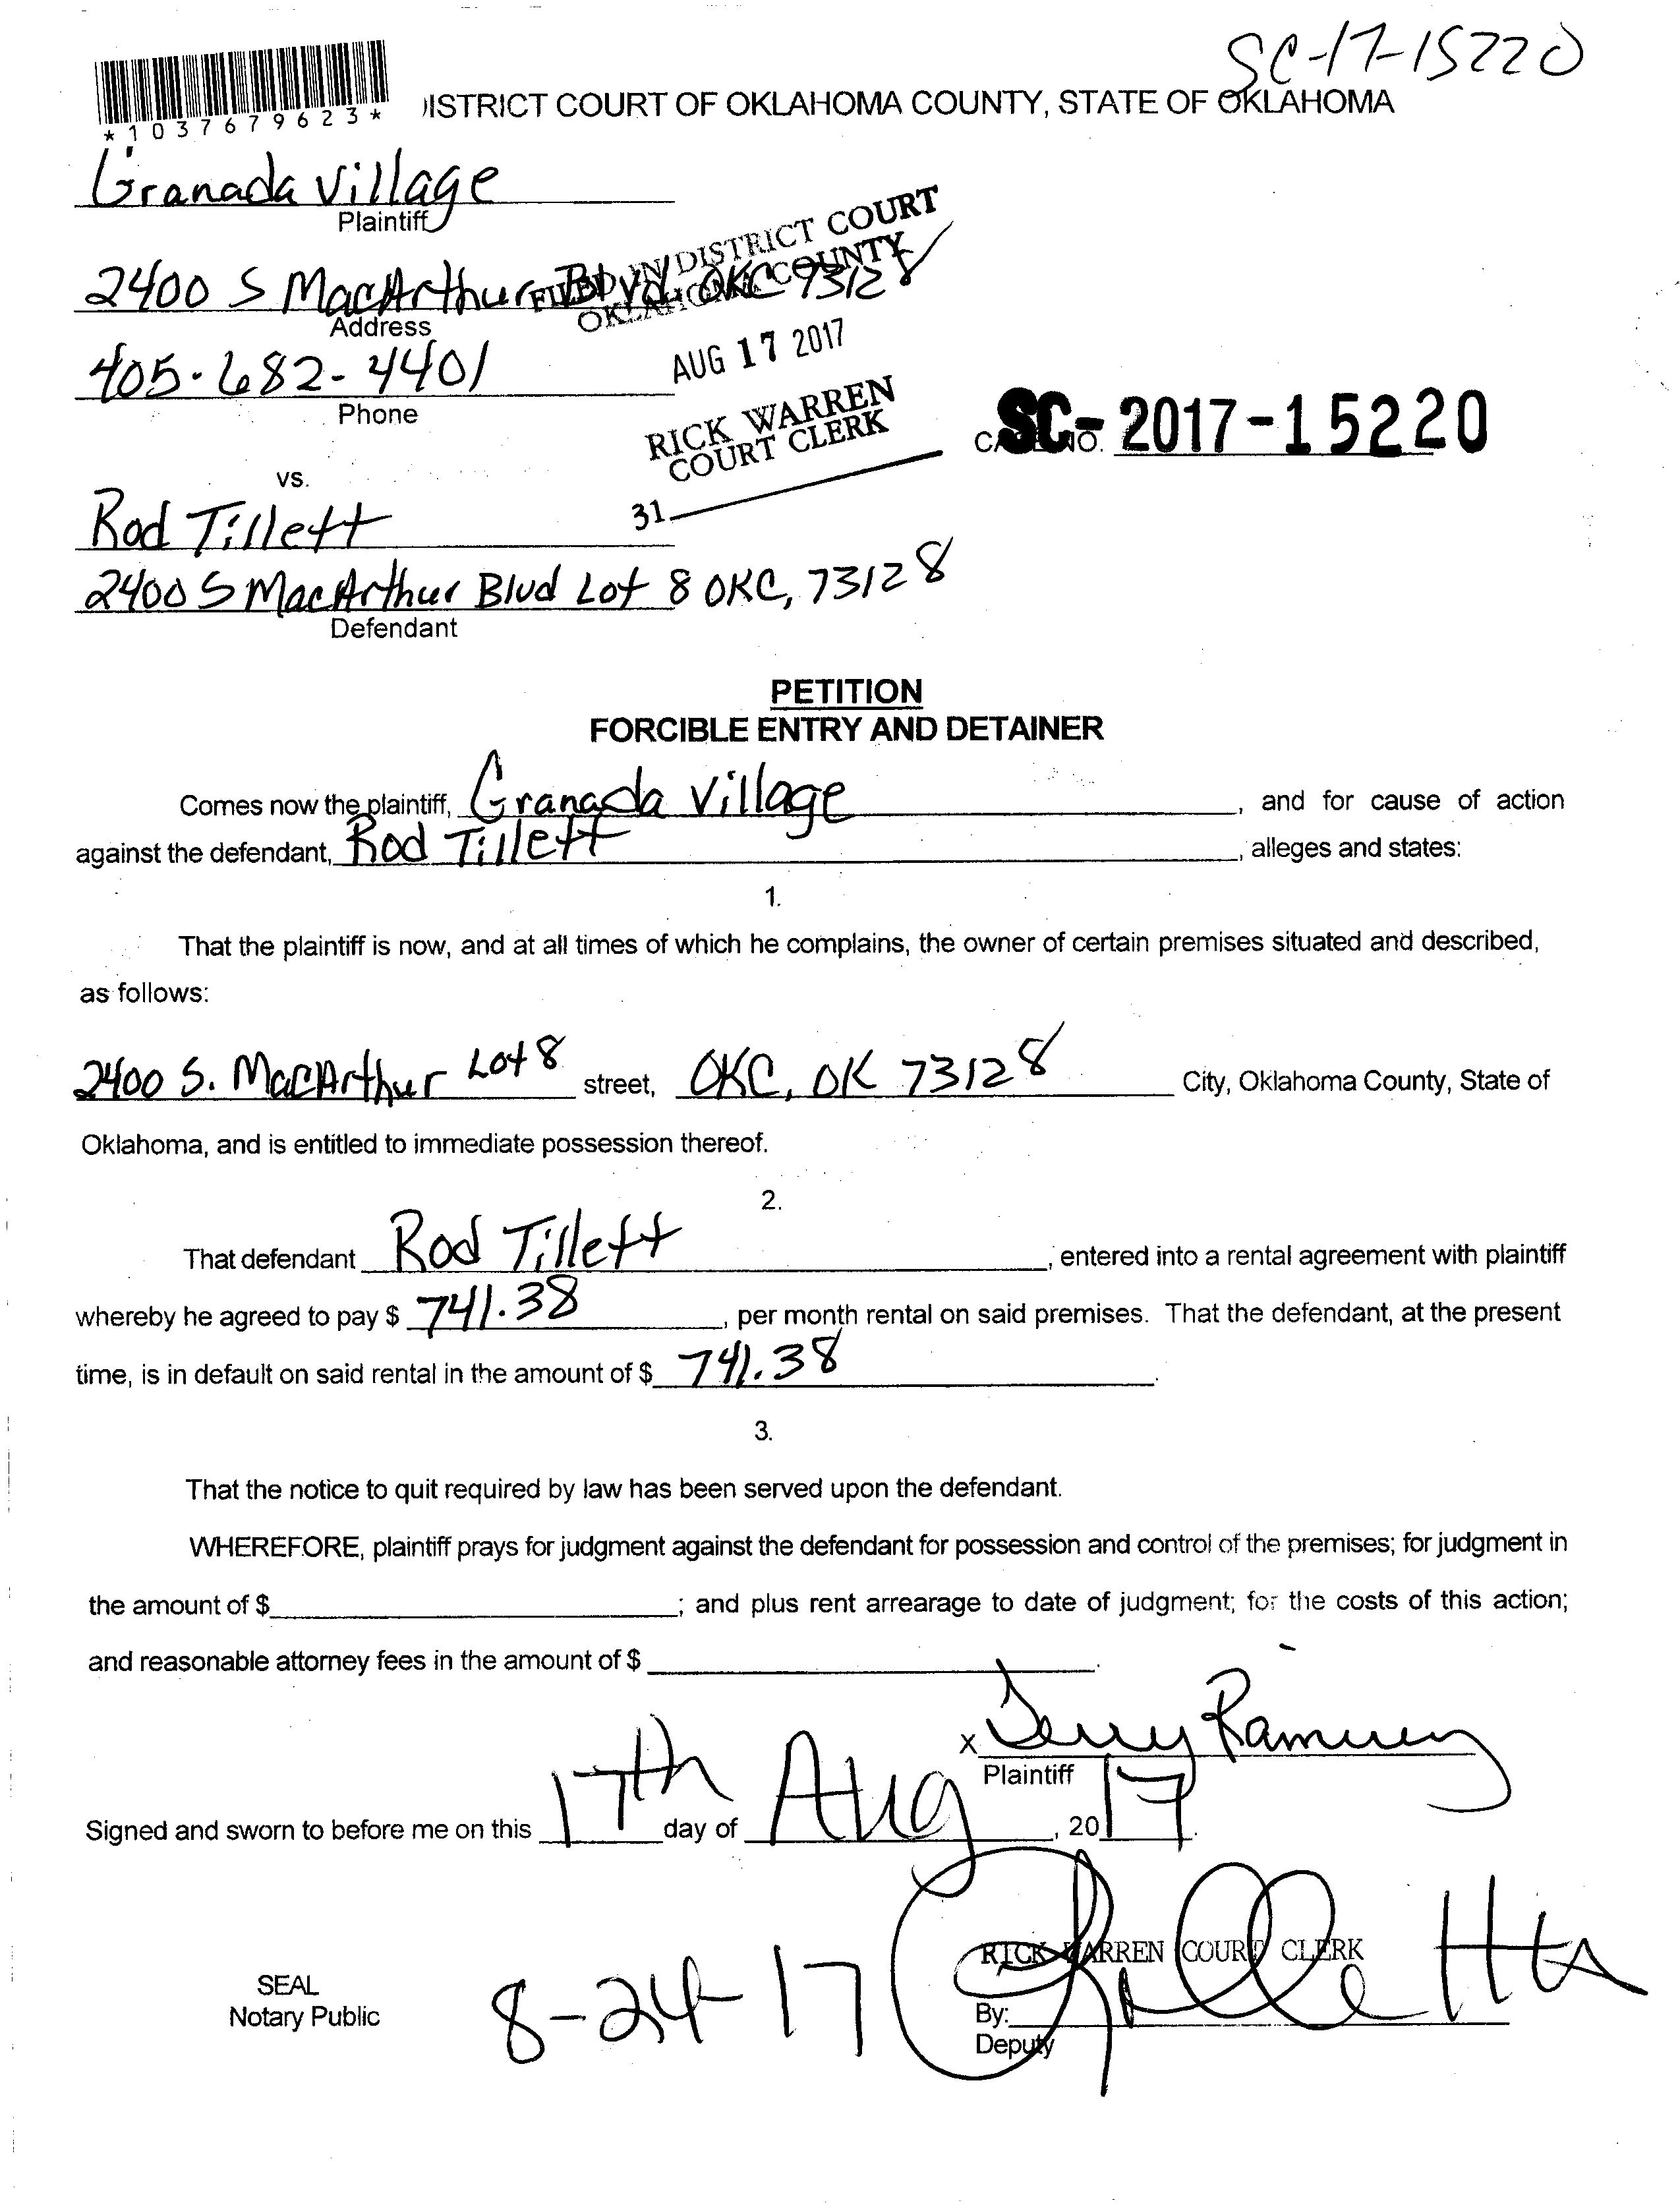 SC-17-15220
*1037679623*
ISTRICT COURT OF OKLAHOMA COUNTY, STATE OF OKLAHOMA
Granada Village
Plaintiff
FILED IN DISTRICT COURT
OKLAHOMA COUNTY
2400 S MacArthur Blvd. OKC 73128
Address
AUG 17 2017
405-682-4401
Phone
RICK WARREN
COURT CLERK
SC-2017-15220
CASE NO.
vs.
31
Rod Tillett
2400 S MacArthur Blvd Lot 8 OKC, 73128
Defendant
PETITION
FORCIBLE ENTRY AND DETAINER
Comes now the plaintiff, Granada Village, and for cause of action
against the defendant, Rod Tillett, alleges and states:
1.
That the plaintiff is now, and at all times of which he complains, the owner of certain premises situated and described,
as follows:
2400 S. MacArthur Lot 8 street, OKC, OK 73128 City, Oklahoma County, State of
Oklahoma, and is entitled to immediate possession thereof.
2.
That defendant Rod Tillett, entered into a rental agreement with plaintiff
whereby he agreed to pay $ 741.38, per month rental on said premises. That the defendant, at the present
time, is in default on said rental in the amount of $ 741.38.
3.
That the notice to quit required by law has been served upon the defendant.
WHEREFORE, plaintiff prays for judgment against the defendant for possession and control of the premises; for judgment in
the amount of $ ; and plus rent arrearage to date of judgment; for the costs of this action;
and reasonable attorney fees in the amount of $ .
X
Plaintiff
Signed and sworn to before me on this 17th day of Aug, 2017.
RICK WARREN COURT CLERK
SEAL
Notary Public
8-24-17
By:
Deputy